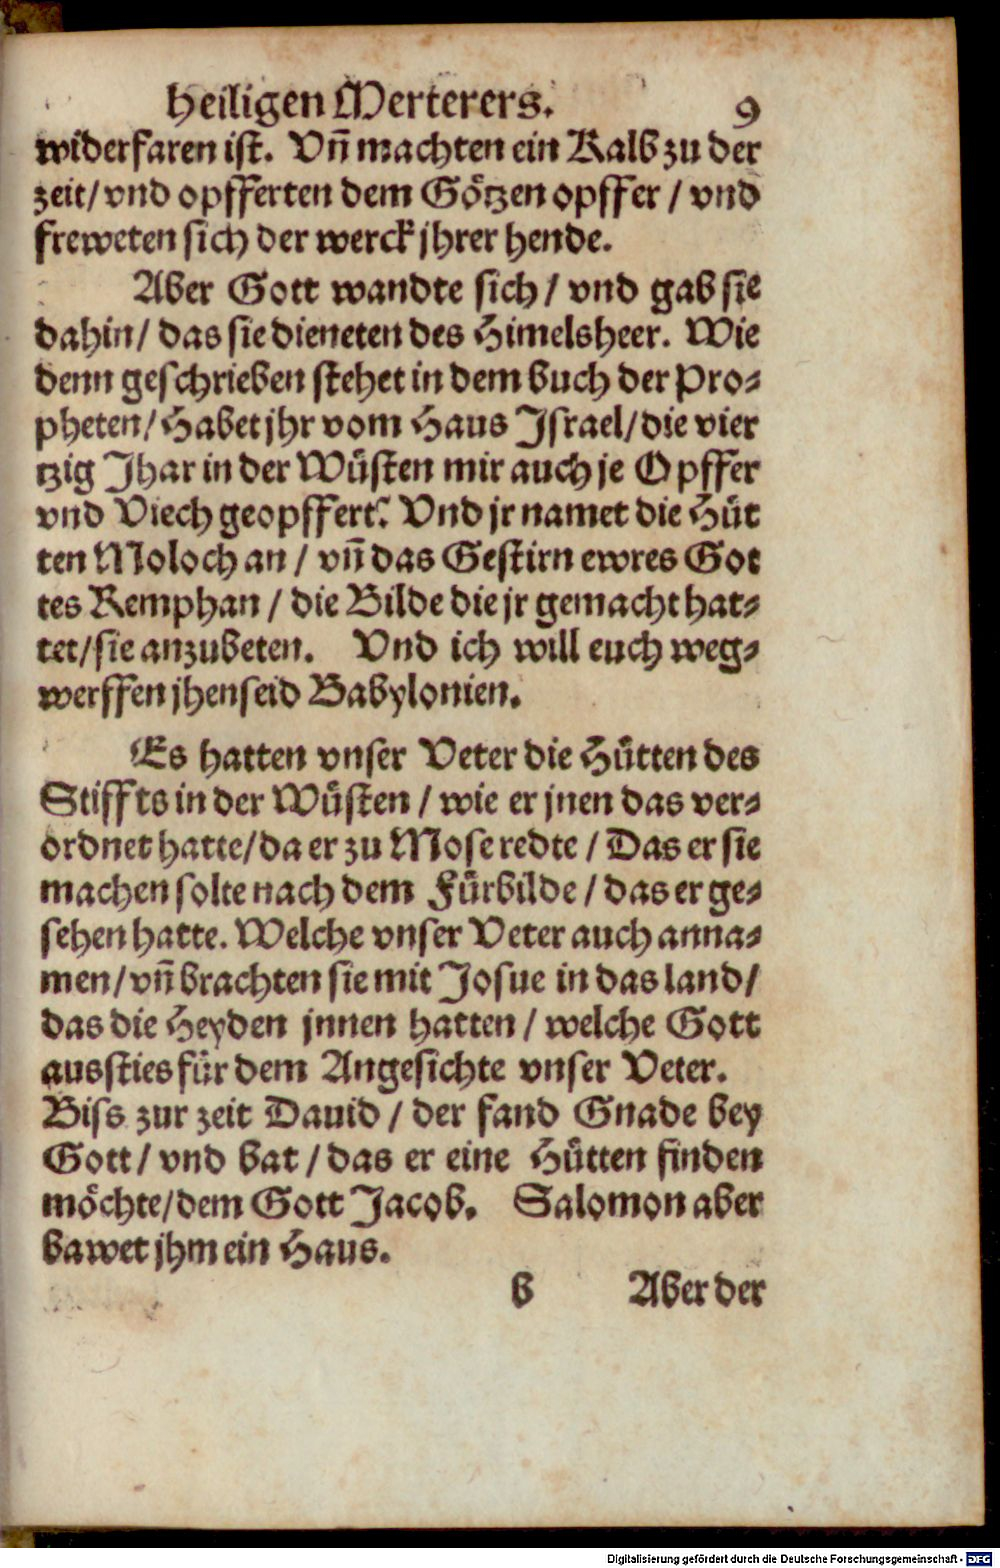 heiligen Merterers. 9
widerfaren ist. Vñ machten ein Kalb zu der
zeit/ vnd opfferten dem Götzen opffer / vnd
freweten sich der werck jhrer hende.
Aber Gott wandte sich/ vnd gab sie
dahin/ das sie dieneten des Himelsheer. Wie
denn geschrieben stehet in dem buch der Pro-
pheten/ Habet jhr vom Haus Israel/ die vier
tzig Jhar in der Wüsten mir auch je Opffer
vnd Viech geopffert? Vnd jr namet die Hüt
ten Moloch an / vñ das Gestirn ewres Got
tes Remphan / die Bilde die jr gemacht hat-
tet/ sie anzubeten. Vnd ich will euch weg-
werffen jhenseid Babylonien.
Es hatten vnser Veter die Hütten des
Stiffts in der Wüsten / wie er jnen das ver-
ordnet hatte/ da er zu Mose redte / Das er sie
machen solte nach dem Fürbilde / das er ge-
sehen hatte. Welche vnser Veter auch anna-
men/ vñ brachten sie mit Josue in das land/
das die Heyden jnnen hatten / welche Gott
aussties für dem Angesichte vnser Veter.
Biss zur zeit Dauid / der fand Gnade bey
Gott/ vnd bat / das er eine Hütten finden
möchte/ dem Gott Jacob. Salomon aber
bawet jhm ein Haus.
b Aber der
Digitalisierung gefördert durch die Deutsche Forschungsgemeinschaft - DFG